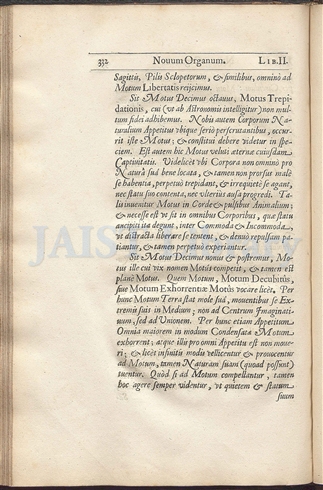 332 Nouum Organum. LIB. II.
Sagittis, Pilis Sclopetorum, & similibus, omninò ad
Motum Libertatis reijcimus.
Sit Motus Decimus octauus, Motus Trepi-
dationis, cui (vt ab Astronomis intelligitur) non mul-
tum fidei adhibemus. Nobis autem Corporum Na-
turalium Appetitus vbique seriò perscrutantibus, occur-
rit iste Motus; & constitui debere videtur in spe-
ciem. Est autem hic Motus veluti æternæ cuiusdam
Captiuitatis. Videlicet vbi Corpora non omninò pro
Naturâ suâ bene locata, & tamen non prorsus malè
se habentia, perpetuò trepidant, & irrequietè se agant,
nec statu suo contenta, nec vlteriùs ausa progredi. Ta-
lis inuenitur Motus in Corde & pulsibus Animalium;
& necesse est vt sit in omnibus Corporibus, quæ statu
ancipiti ita degunt, inter Commoda & Incommoda,
vt distracta liberare se tentent, & denuò repulsam pa-
tiantur, & tamen perpetuò experiantur.
Sit Motus Decimus nonus & postremus, Mo-
tus ille cui vix nomen Motûs competit, & tamen est
planè Motus. Quem Motum, Motum Decubitûs,
siue Motum Exhorrentiæ Motûs vocare licet. Per
hunc Motum Terra stat mole suâ, mouentibus se Ex-
tremis suis in Medium; non ad Centrum Imaginati-
uum, sed ad Vnionem. Per hunc etiam Appetitum
Omnia maiorem in modum Condensata Motum
exhorrent; atque illis pro omni Appetitu est non moue-
ri; & licèt infinitis modis vellicentur & prouocentur
ad Motum, tamen Naturam suam (quoad possunt)
tuentur. Quòd si ad Motum compellantur, tamen
hoc agere semper videntur, vt quietem & statum
suum
JAIST Library